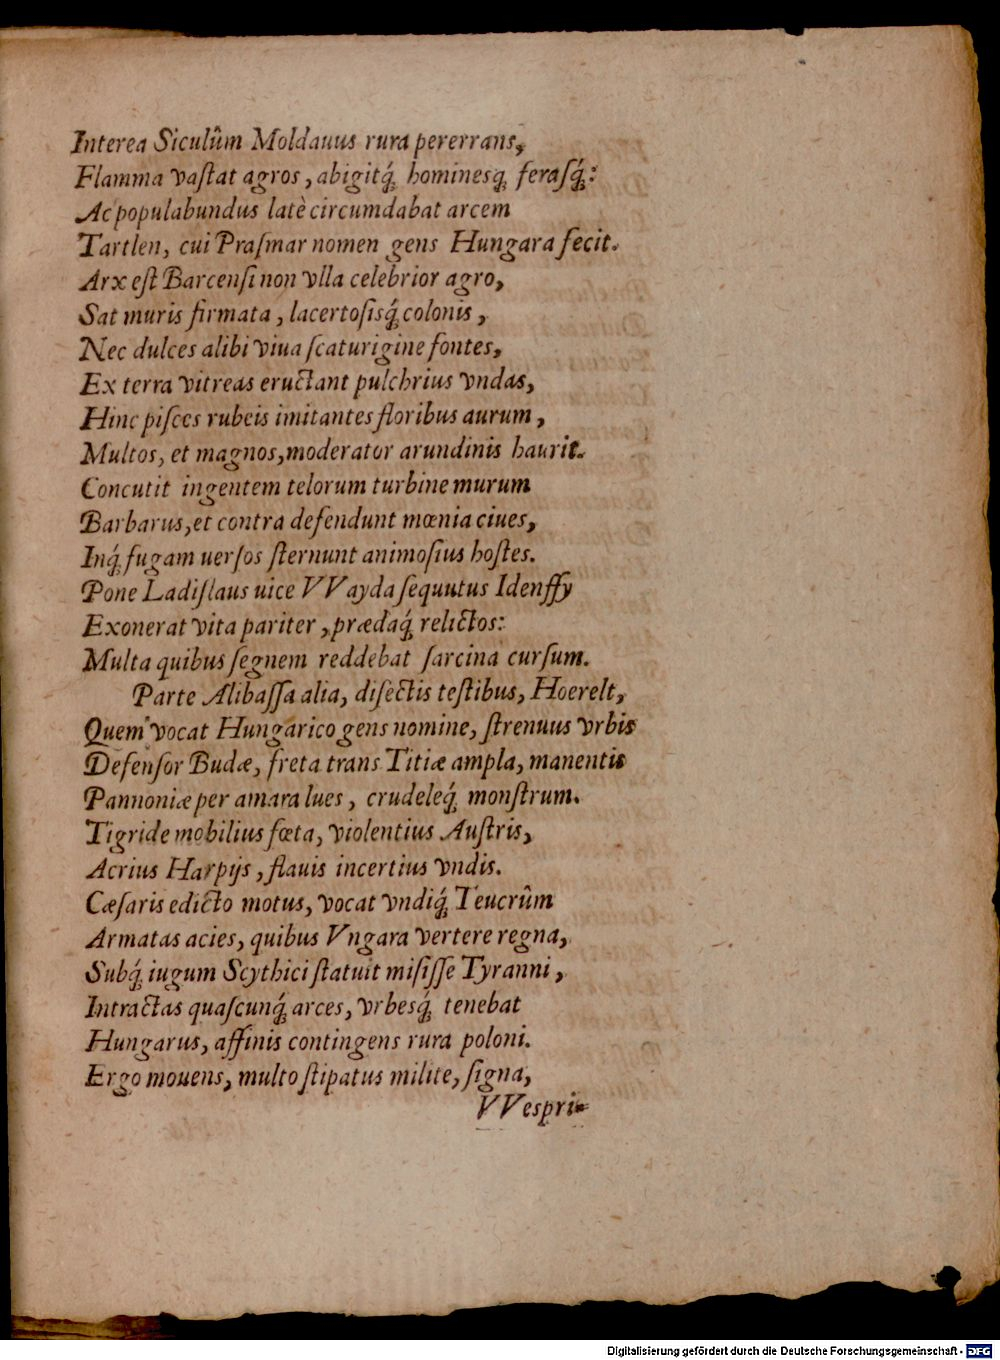 Interea Siculûm Moldauus rura pererrans,
Flamma vaſtat agros, abigitq́; hominesq; feraſq́;:
Ac populabundus latè circumdabat arcem
Tartlen, cui Praſmar nomen gens Hungara fecit.
Arx eſt Barcenſi non vlla celebrior agro,
Sat muris firmata, lacertoſisq́; colonis,
Nec dulces alibi viua ſcaturigine fontes,
Ex terra vitreas eructant pulchrius vndas,
Hinc piſces rubeis imitantes floribus aurum,
Multos, et magnos, moderator arundinis haurit.
Concutit ingentem telorum turbine murum
Barbarus, et contra defendunt mœnia ciues,
Inq́; fugam uerſos ſternunt animoſius hoſtes.
Pone Ladiſlaus uice VVayda ſequutus Idenffy
Exonerat vita pariter, prædaq́; relictos:
Multa quibus ſegnem reddebat ſarcina curſum.
Parte Alibaſſa alia, diſectis teſtibus, Hoerelt,
Quem vocat Hungarico gens nomine, ſtrenuus vrbis
Defenſor Budæ, freta trans Titiæ ampla, manentis
Pannoniæ per amara lues, crudeleq́; monſtrum.
Tigride mobilius fœta, violentius Auſtris,
Acrius Harpijs, flauis incertius vndis.
Cæſaris edicto motus, vocat vndiq́; Teucrûm
Armatas acies, quibus Vngara vertere regna,
Subq́; iugum Scythici ſtatuit miſiſſe Tyranni,
Intractas quaſcunq́; arces, vrbesq́; tenebat
Hungarus, affinis contingens rura poloni.
Ergo mouens, multo ſtipatus milite, ſigna,
VVespri-
Digitalisierung gefördert durch die Deutsche Forschungsgemeinschaft - DFG